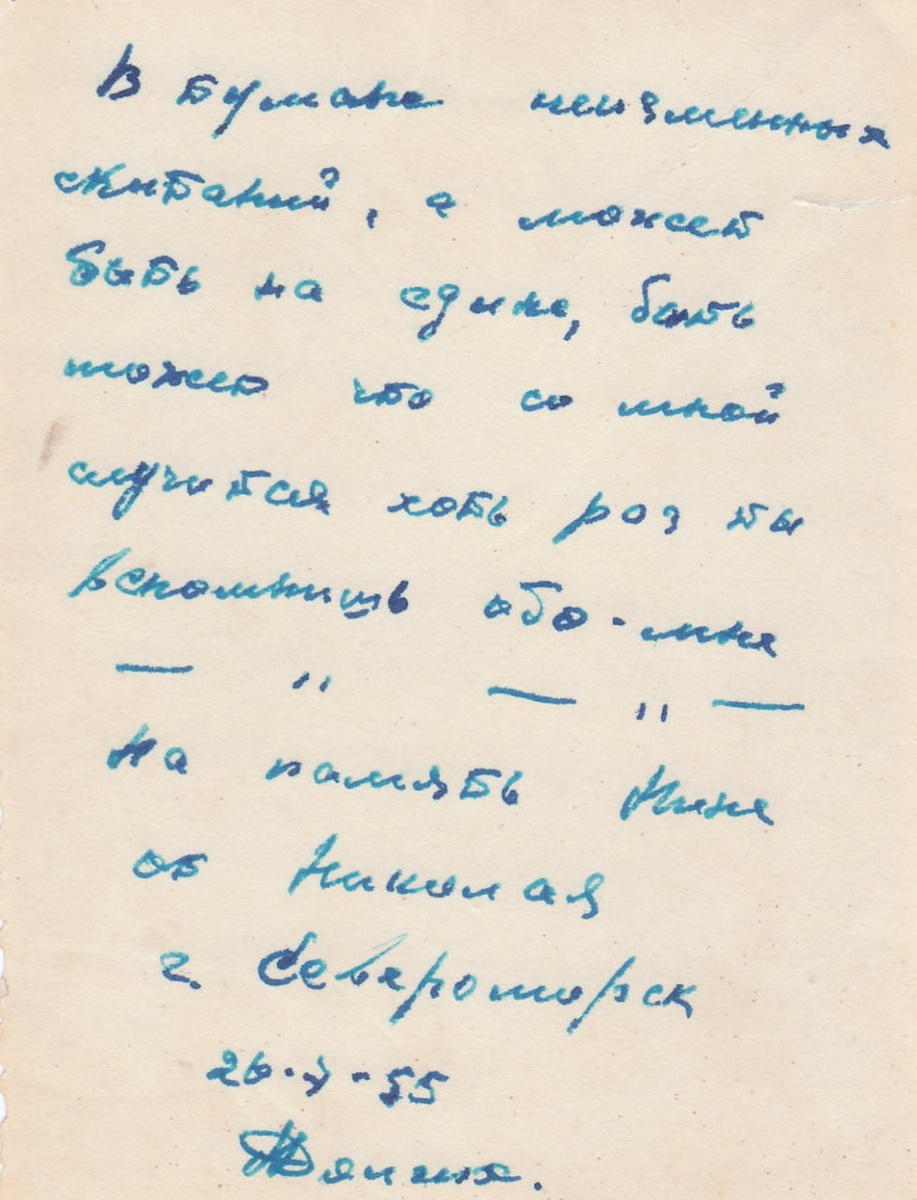 В тумане неизменных
скитаний, а может
быть на едине, быть
может что со мной
случится хоть роз ты
вспомнишь обо-мне
— " — " —
На память Нине
от Николая
г. Североморск